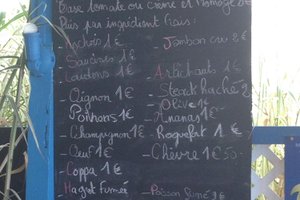 Base tomate ou crème et fromage
Plus par ingrédient (aus:
- Anchois 1€
- Jambon cru 2€
- Saucisses 1€
- Lardons 1€
- Artichauts 1€
- Oignon 1€
- Steack Haché 2
- Poivrons 1€
- Olive 1€
- Ananas 1€
- Champignon 1€
- Roquefort 1€
- Oeuf 1€
- Chèvre 1€50
- Coppa 1€
- Magret Fumée
- Poisson fumé 3€